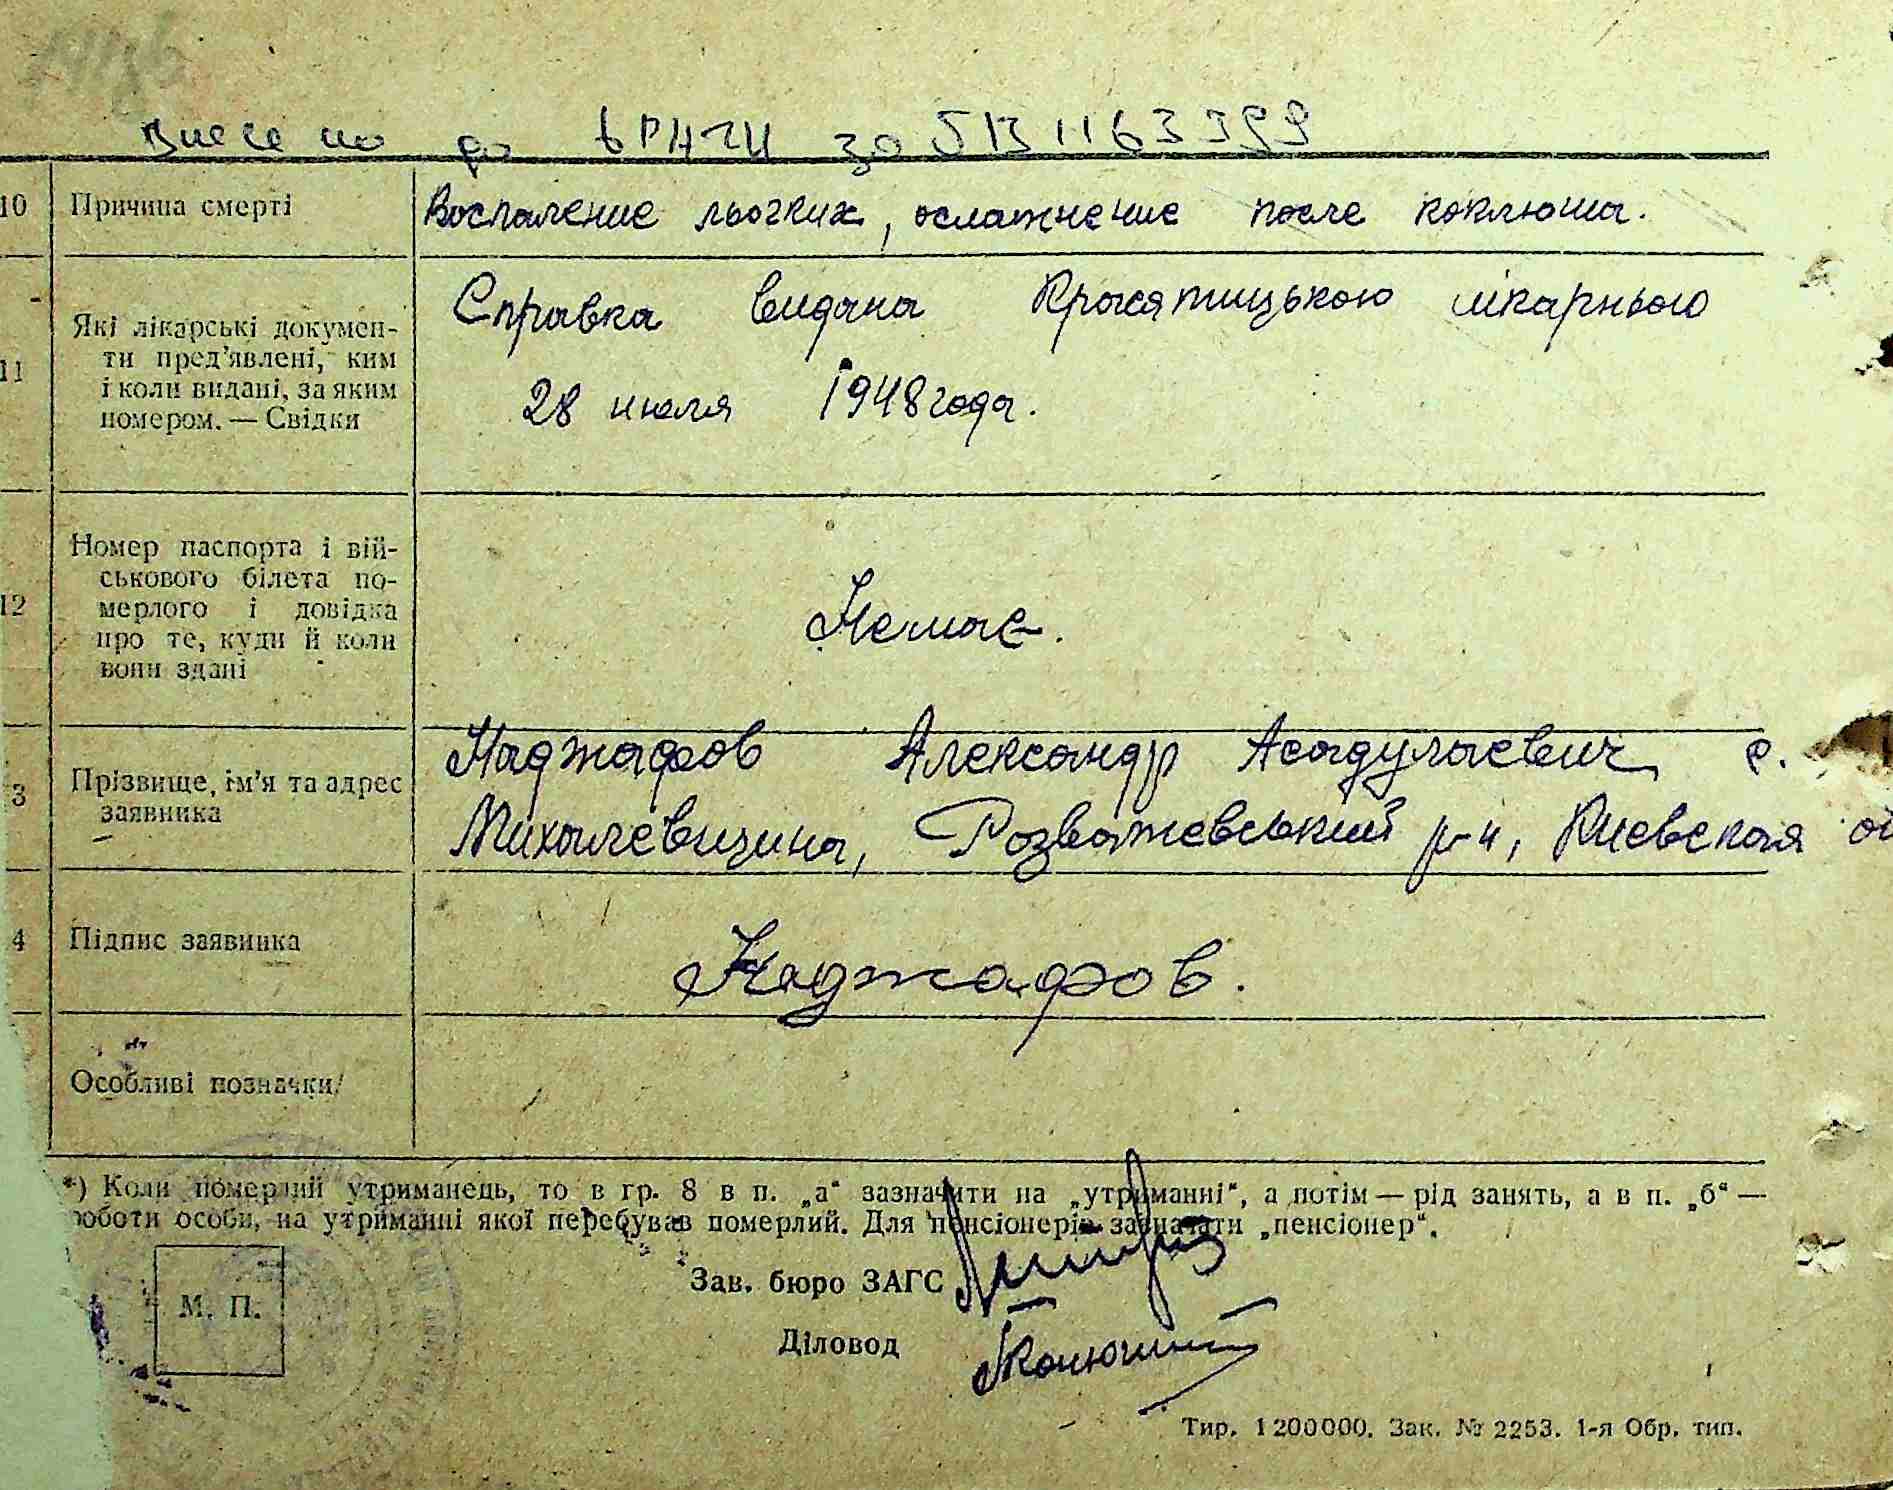 Внесено до ДРАЦС за 5131163399
10 Причина смерті Воспаление льогких, осложнение после коклюша.
11 Які лікарські докумен-
ти пред'явлені, ким
і коли видані, за яким
номером. — Свідки
Справка видана Красятицькою лікарньою
28 июля 1948 года.
12 Номер паспорта і вій-
ськового білета по-
мерлого і довідка
про те, куди й коли
вони здані
Немає.
3 Прізвище, ім'я та адрес
заявника
Наджафов Александр Асадулаевич, с.
Михалевщина, Розважевський р-н, Киевская об
4 Підпис заявника Наджафов.
Особливі позначки
*) Коли померлий утриманець, то в гр. 8 в п. „а“ зазначити на „утриманні“, а потім — рід занять, а в п. „б“ —
роботи особи, на утриманні якої перебував померлий. Для пенсіонерів зазначати „пенсіонер“.
М. П.
Зав. бюро ЗАГС
Діловод
Тир. 1200000. Зак. № 2253. 1-я Обр. тип.